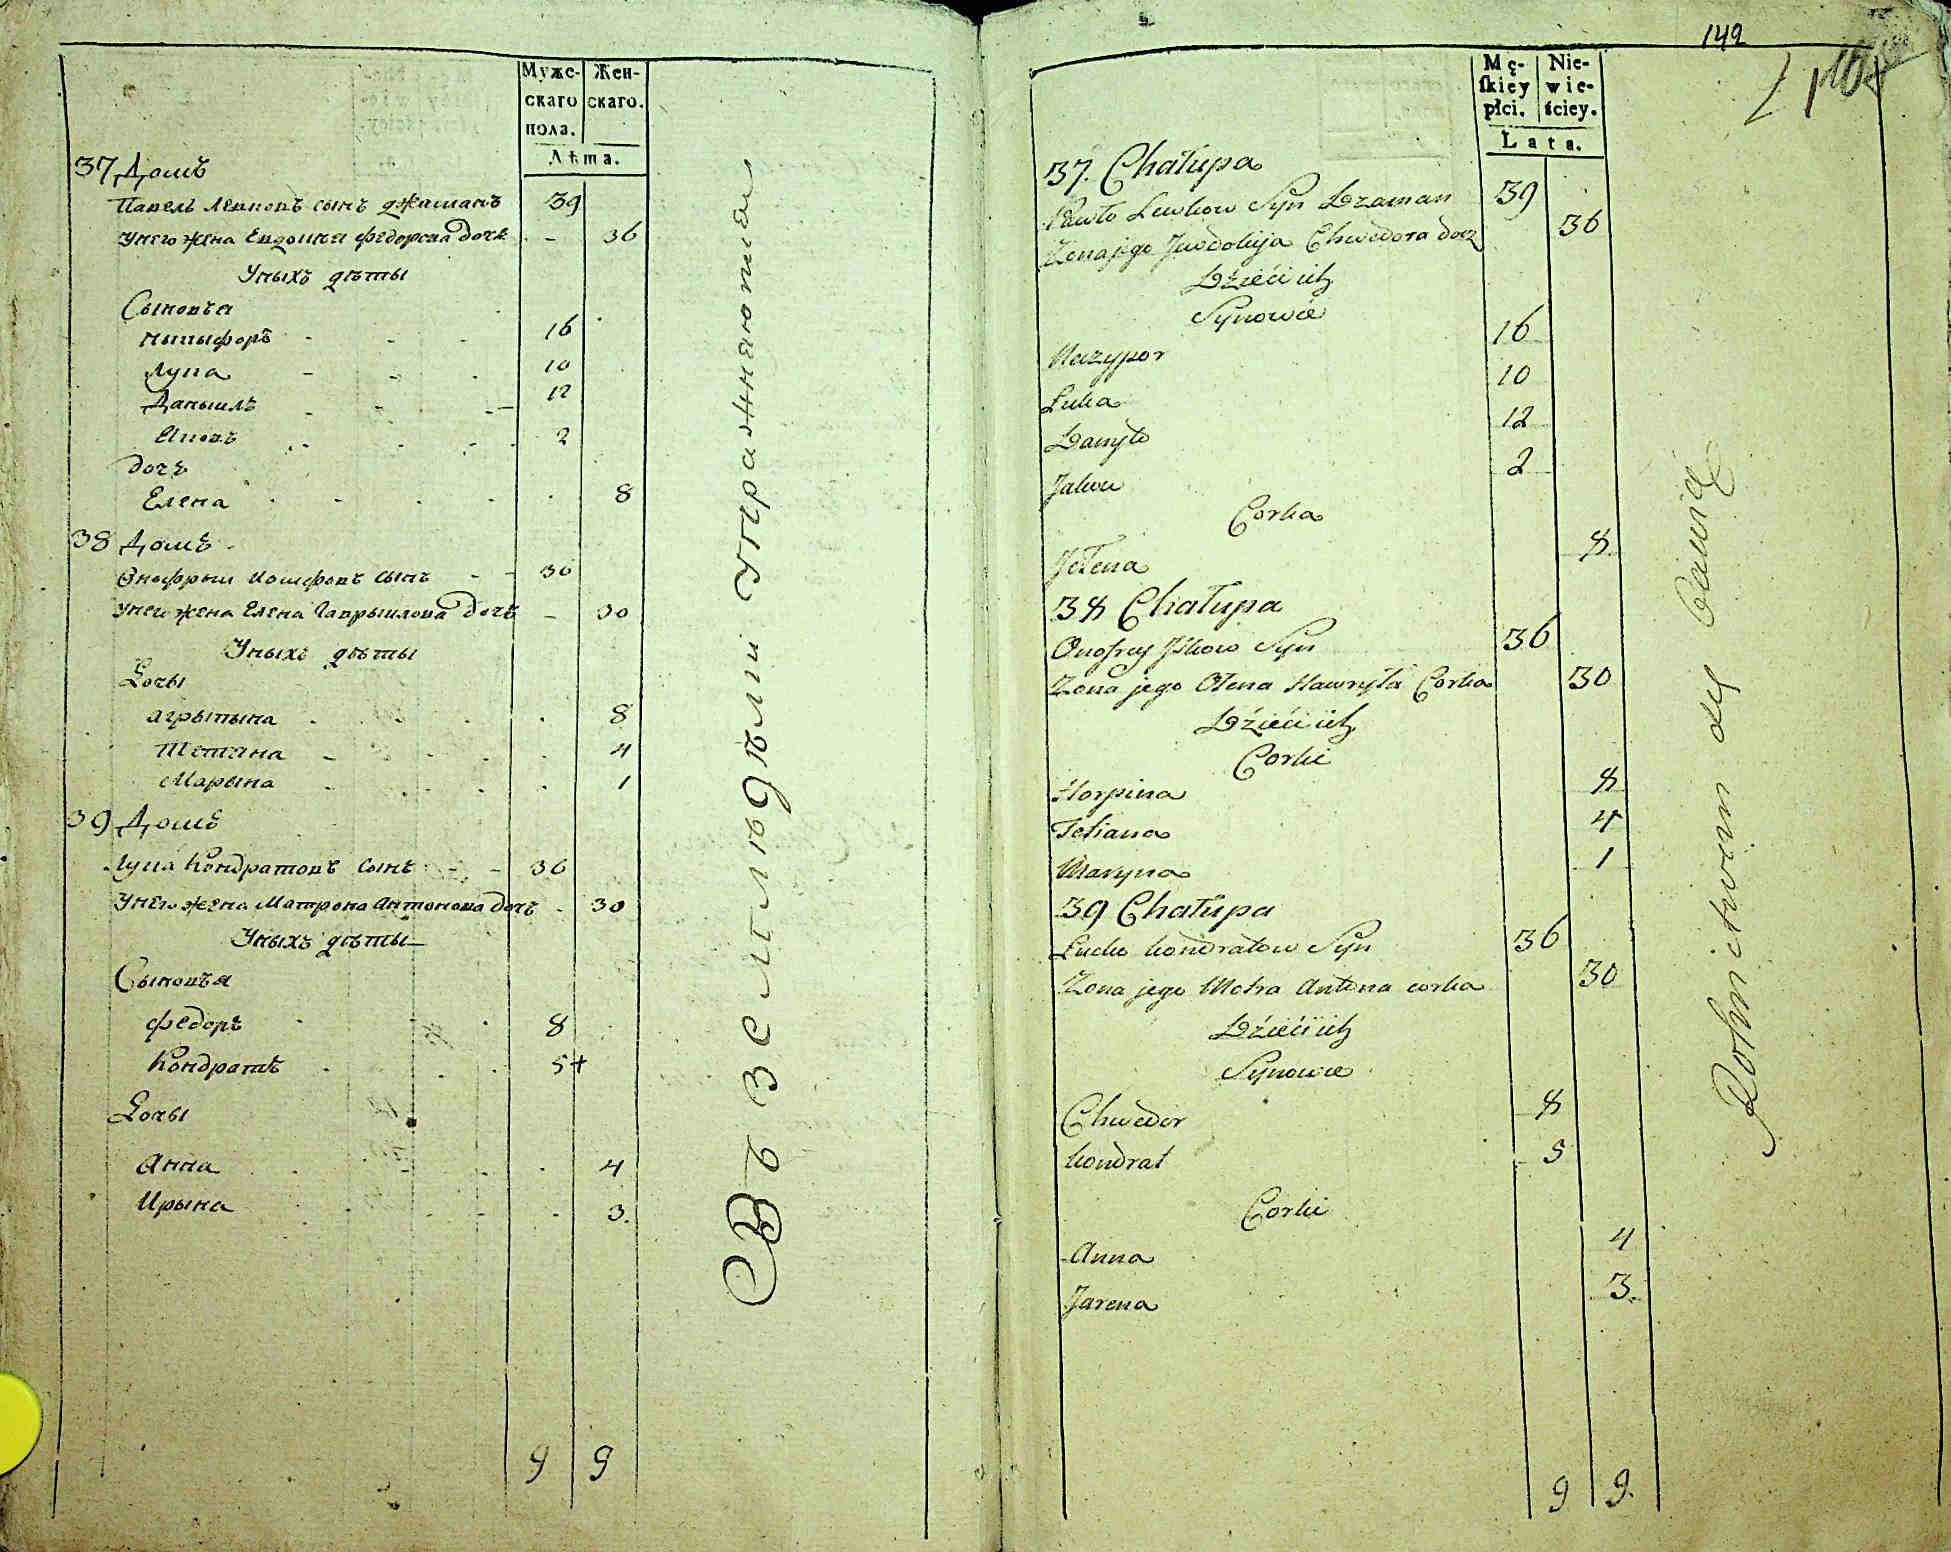 Муже-
скаго
пола.
Жен-
скаго.
Лѣта.
37 Домъ
Павелъ Левковъ сынъ джаманъ 39
Унего жена Евдокия Федорова дочь - 36
Уныхъ дѣты
Сыновъя
Ныкыфоръ 16
Лука 10
Даныилъ 12
Яковъ 2
дочъ
Елена 8
38 Домъ
Онофрый сынъ 36
Унего жена Елена Гаврыилова дочъ - 30
Уныхъ дѣты
Дочъи
Агрыпына 8
Тетяна 4
Марына 1
39 Домъ
Лука Кондратовъ сынъ 36
Унего жена Матрона Антонова дочъ - 30
Уныхъ дѣты
Сыновъя
Федоръ 8
Кондратъ 5+
Дочъи
Анна 4
Ирына 3.
9 9
Въ земледѣлии упражняются
149
Mę-
ſkiey
płci.
Nie-
wie-
ściey.
Lata.
37. Chałupa
Pawło Lewkow Syn Dzaman 39
Zona jego Jwdokija Chwedora docz 36
Dzieci ich
Synowie
Niczypor 16
Łuka 10
Danyło 12
Jakow 2
Corka
Jełena 8
38 Chałupa
Onofrey Jśkow Syn 36
Zona jego Ołena Hawryła Corka 30
Dzieci ich
Corki
Horpina 8
Tetiana 4
Maryna 1
39 Chałupa
Łuka Kondratow Syn 36
Zona jego Motra Antona corka 30
Dzieci ich
Synowie
Chwedor 8
Kondrat 5
Corki
Anna 4
Jarena 3.
9 9.
Rolnictwem się bawią